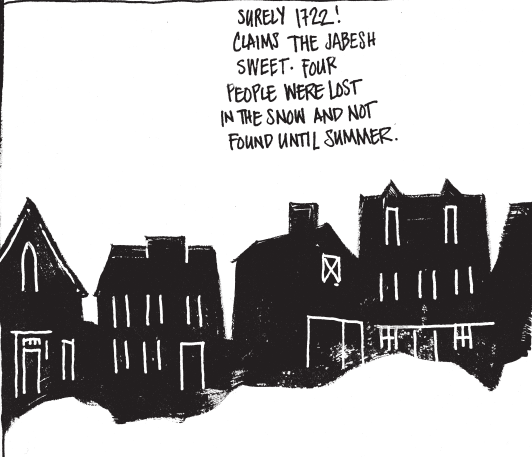 SURELY 1722!
CLAIMS THE JABESH
SWEET. FOUR
PEOPLE WERE LOST
IN THE SNOW AND NOT
FOUND UNTIL SUMMER.